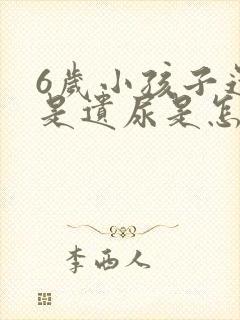 6歲小孩子
是遺尿是怎
李西人